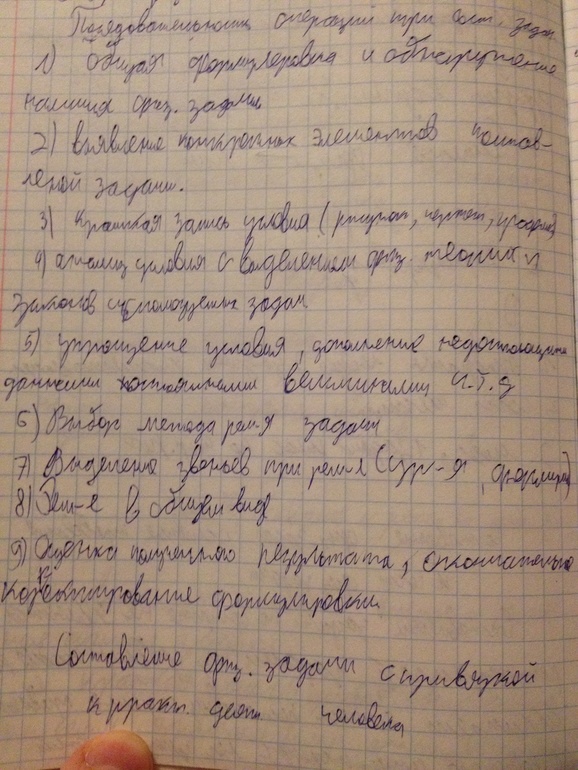 Последовательность операций при сост. задач
1) Общая формулировка и обнаружение
наличия физ. задачи
2) выявление конкретных элементов состав-
леной задачи.
3) Краткая запись условия (рисунок, чертеж, график)
4) анализ условия с выделением физ. теорий и
законов используемых задач
5) упрощение условия, дополнение недостающими
данными постоянными величинами и.т.д
6) Выбор метода реш-я задачи
7) Выделение звеньев при реш-и (ур-я, формулы)
8) Реш-е в общем виде
9) Оценка полученного результата, окончательно
корректирование формулировки.
Составление физ. задачи с привязкой
к практ. деят. человека